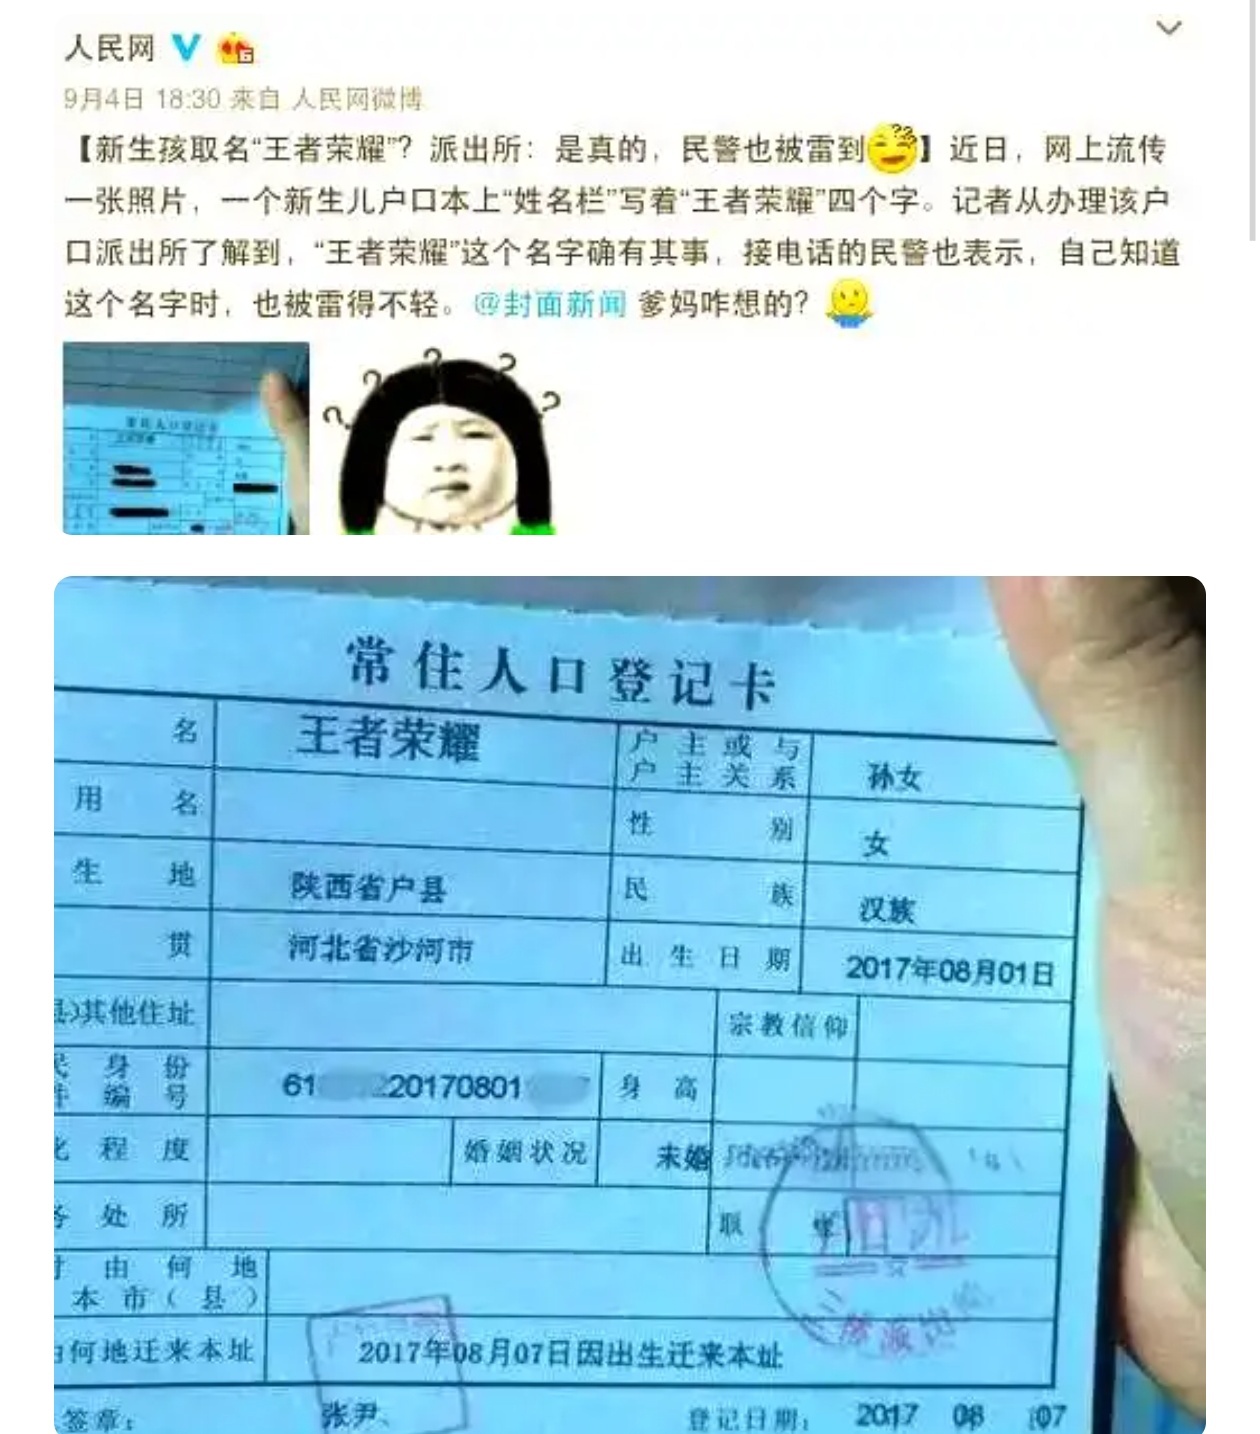 人民网
9月4日 18:30 来自 人民网微博
【新生孩取名“王者荣耀”？派出所：是真的，民警也被雷到】近日，网上流传
一张照片，一个新生儿户口本上“姓名栏”写着“王者荣耀”四个字。记者从办理该户
口派出所了解到，“王者荣耀”这个名字确有其事，接电话的民警也表示，自己知道
这个名字时，也被雷得不轻。@封面新闻 爹妈咋想的？
常住人口登记卡
名 王者荣耀 户主或与 孙女
户主关系
用名 性别 女
生地 陕西省户县 民族 汉族
贯 河北省沙河市 出生日期 2017年08月01日
县)其他住址 宗教信仰
民身份 61 20170801 身高
件编号
化程度 婚姻状况 未婚
务处所
由何地
本市（县）
何地迁来本址 2017年08月07日因出生迁来本址
签章： 张尹 登记日期： 2017 08 07